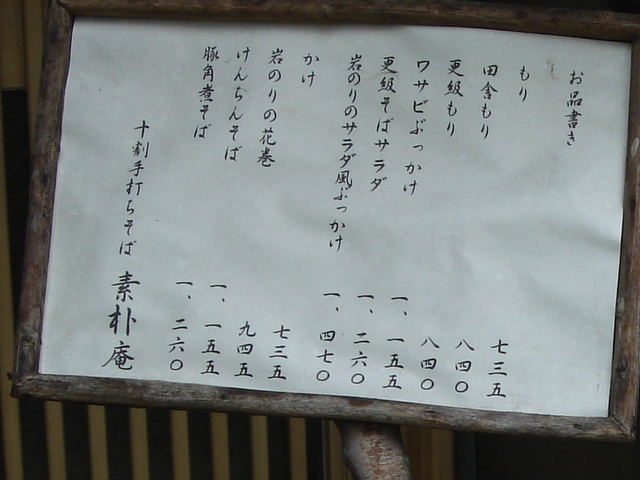 お品書き
もり 七三五
田舎もり 八四〇
更級もり 八四〇
ワサビぶっかけ 一、一五五
更級そばサラダ 一、二六〇
岩のりのサラダ風ぶっかけ 一、四七〇
かけ 七三五
岩のりの花巻 九四五
けんちんそば 一、一五五
豚角煮そば 一、二六〇
十割手打ちそば 素朴庵